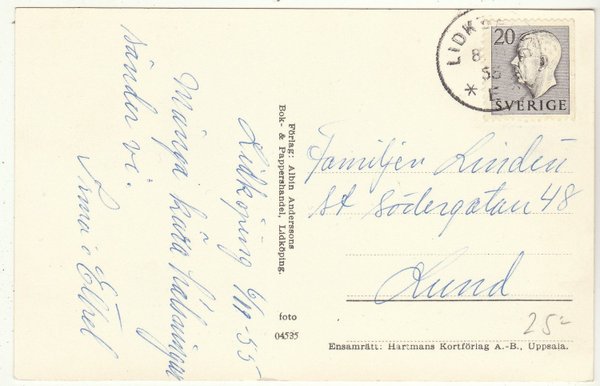 Lidköping 6/11-55
Många kära hälsningar
sänder vi.
Irma o Ethel
Förlag: Albin Anderssons
Bok- & Pappershandel, Lidköping.
foto
04535
LIDK
8
55
* E
20
SVERIGE
Familjen Lindén
St Södergatan 48
Lund
25-
Ensamrätt: Hartmans Kortförlag A.-B., Uppsala.